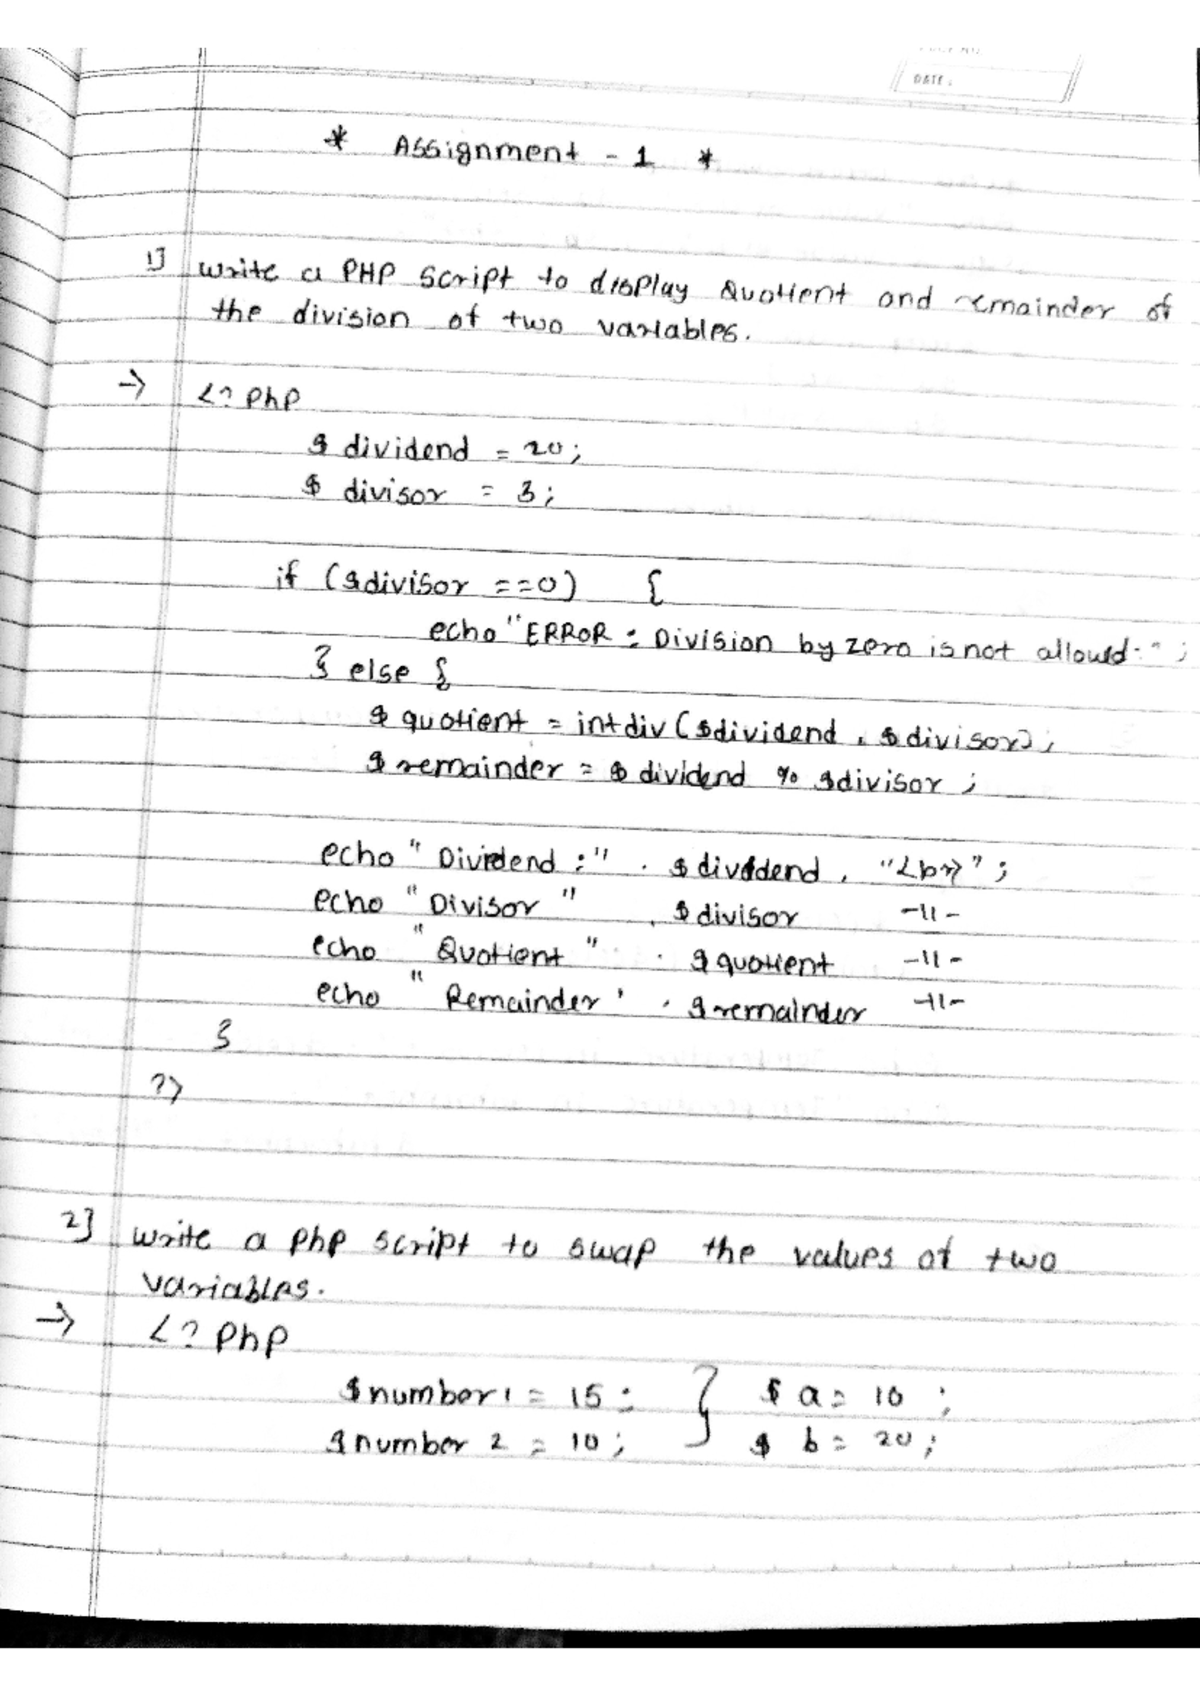 DATE :
* Assignment - 1 *
1] write a PHP script to display Quotient and remainder of
the division of two variables.
→ <? php
$ dividend = 20;
$ divisor = 3;
if ($divisor ==0) {
echo "ERROR : Division by zero is not allowed." ;
} else {
$ quotient = intdiv ($dividend , $ divisor);
$ remainder = $ dividend % $divisor ;
echo " Dividend :" . $ dividend . "<br>" ;
echo " Divisor " . $ divisor -11-
echo " Quotient " . $ quotient -11-
echo " Remainder ' . $ remainder -11-
}
?>
2] write a php script to swap the values of two
variables.
→ <? php
$number1 = 15 ; } $ a = 10 ;
$number 2 = 10 ; $ b = 20 ;